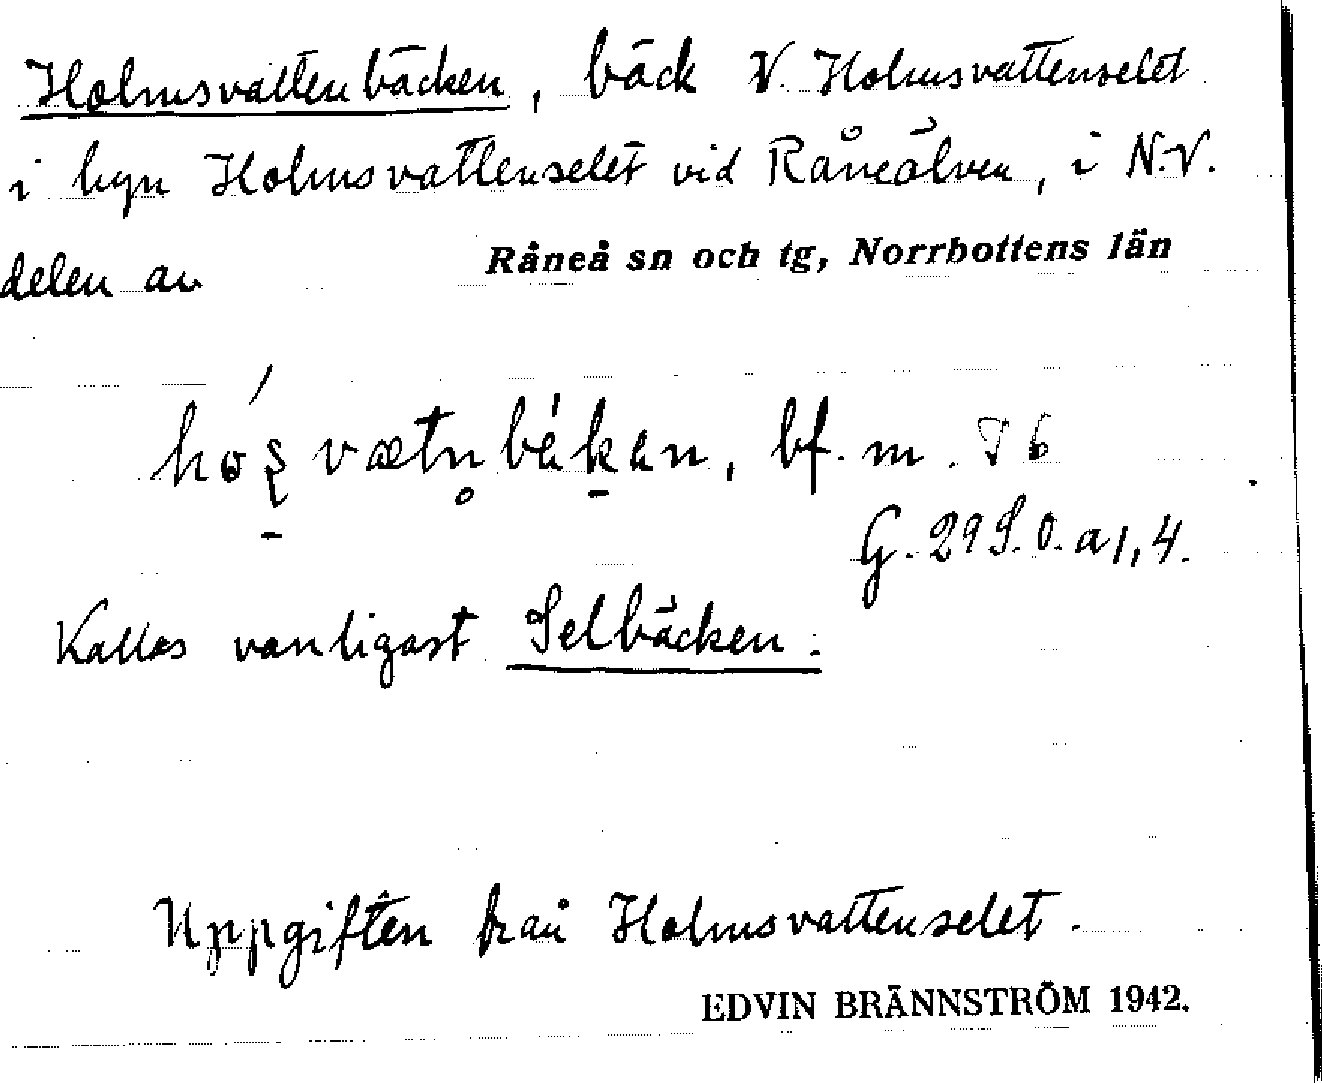 Holmsvattenbäcken, bäck V. Holmsvattenselet
i byn Holmsvattenselet vid Råneälven, i N.V.
delen av Råneå sn och tg, Norrbottens län
bf. m.
G. 29 S. O. a 1, 4.
Kallas vanligast Selbäcken.
Uppgiften från Holmsvattenselet.
EDVIN BRÄNNSTRÖM 1942.